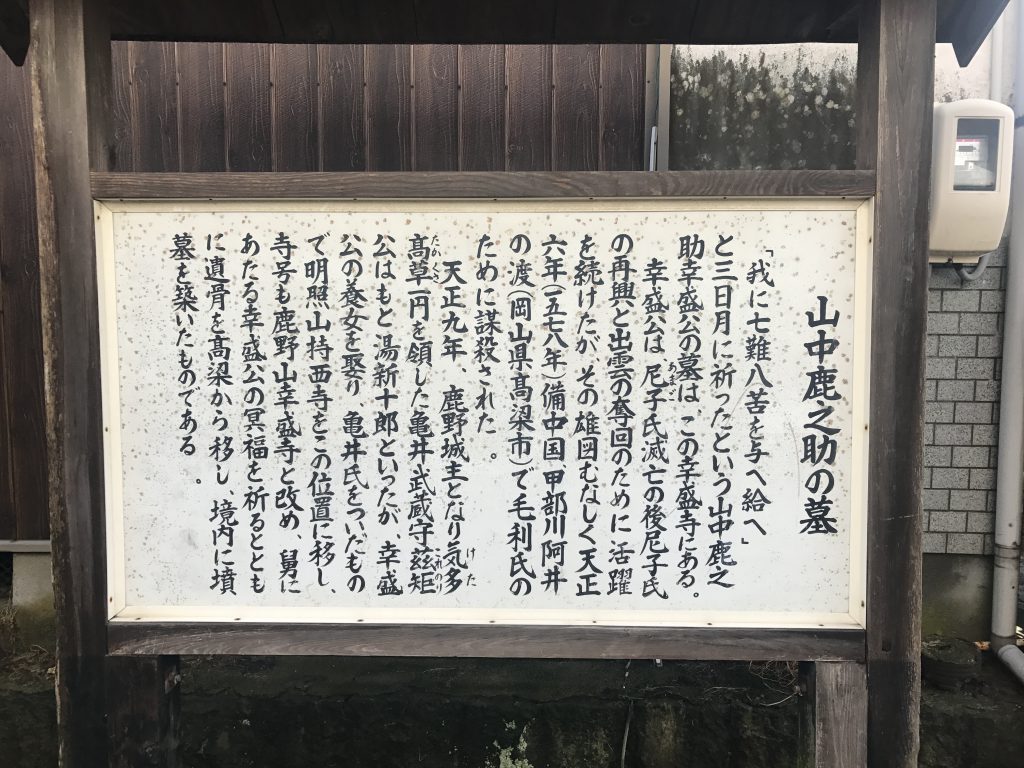 山中鹿之助の墓
「我に七難八苦を与へ給へ」
と三日月に祈ったという山中鹿之
助幸盛公の墓は、この幸盛寺にある。
幸盛公は尼子氏滅亡の後尼子氏
あまご
の再興と出雲の奪回のために活躍
を続けたが、その雄図むなしく天正
六年(一五七八年)備中国甲部川阿井
の渡(岡山県髙梁市)で毛利氏の
ために謀殺された。
天正九年、鹿野城主となり気多
けた
髙草一円を領した亀井武蔵守茲矩
たかくさ
これのり
公はもと湯新十郎といったが、幸盛
公の養女を娶り亀井氏をついだもの
で明照山持西寺をこの位置に移し、
寺号も鹿野山幸盛寺と改め、舅に
あたる幸盛公の冥福を祈るととも
に遺骨を髙梁から移し、境内に墳
墓を築いたものである。